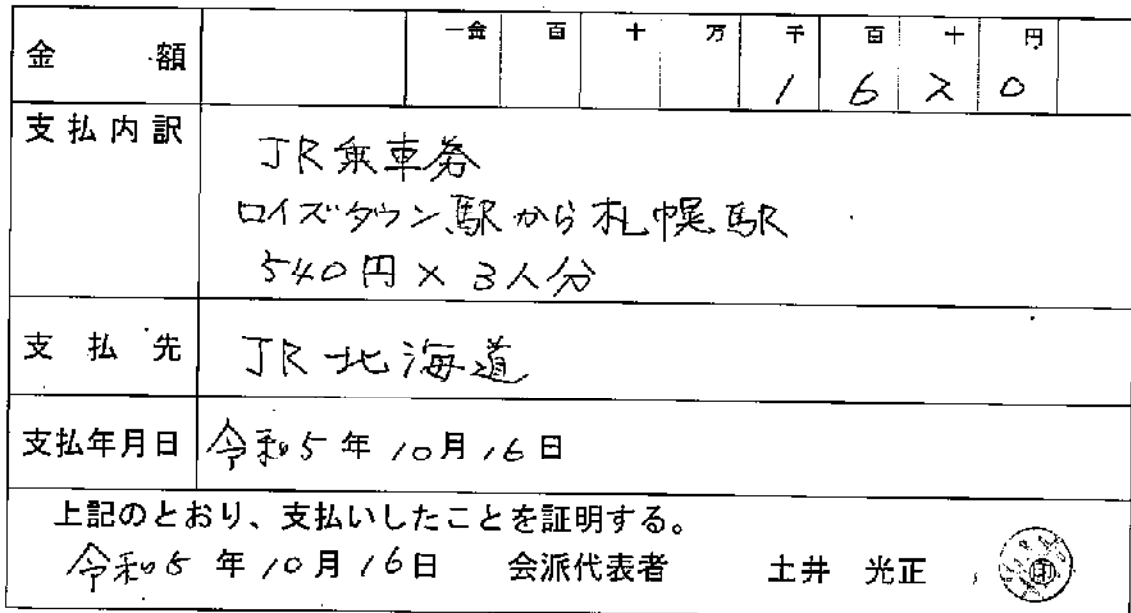 金 額 一金 百 十 万 千 百 十 円
1 6 2 0
支払内訳
JR乗車券
ロイズタウン駅から札幌駅
540円×3人分
支払先 JR北海道
支払年月日 令和5年10月16日
上記のとおり、支払いしたことを証明する。
令和5年10月16日 会派代表者 土井 光正 印